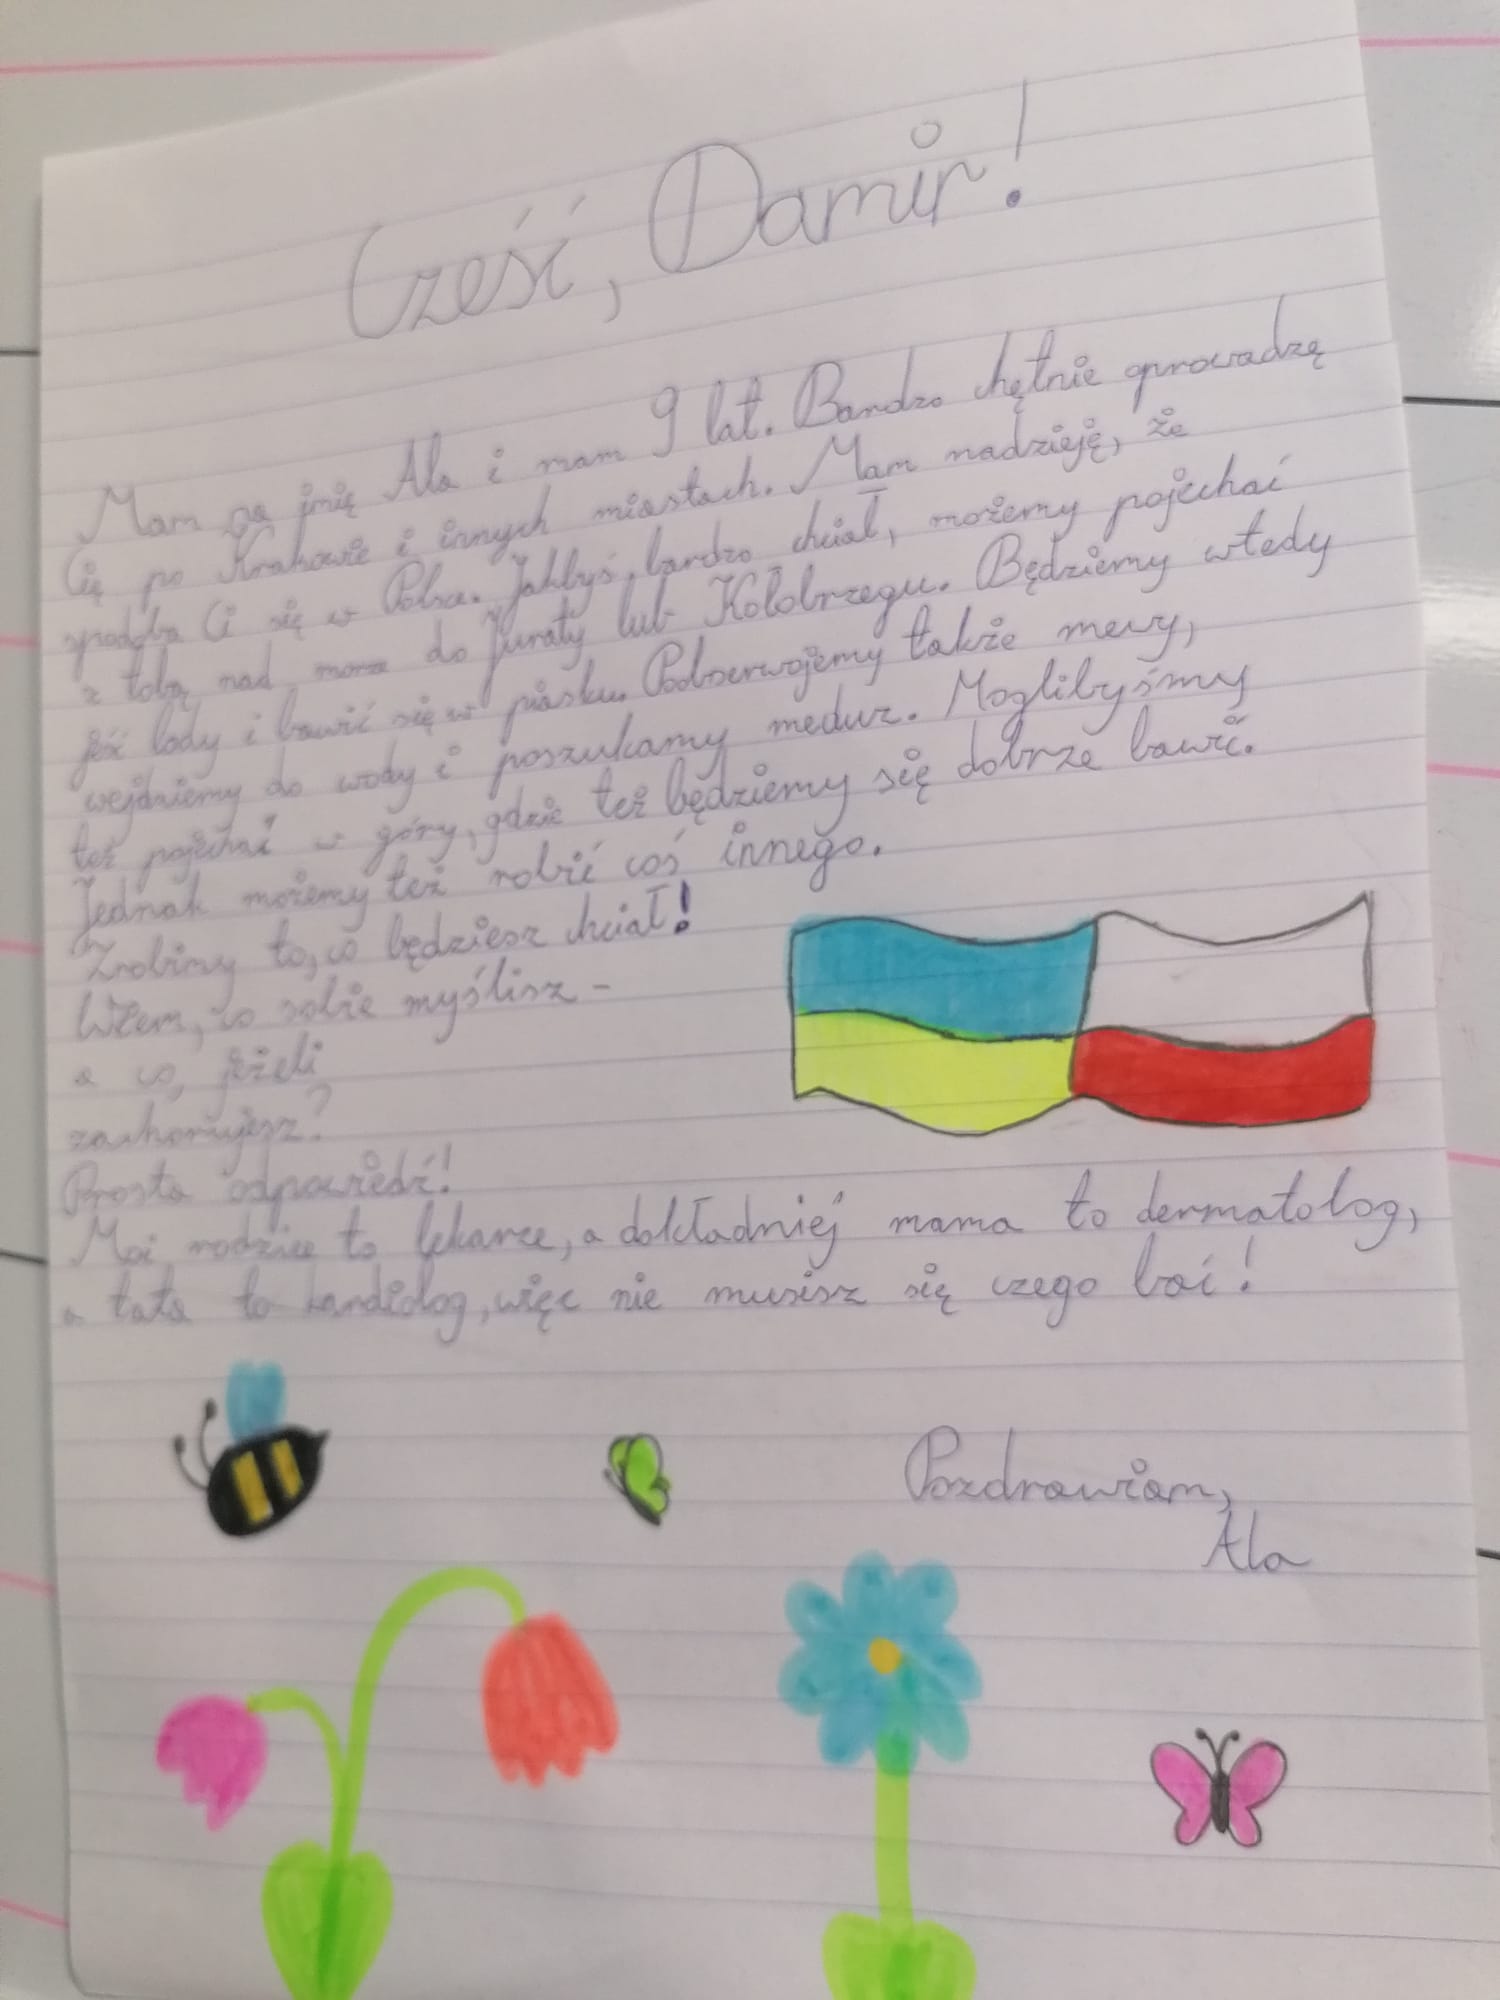 Cześć, Damir!
Mam na imię Ala i mam 9 lat. Bardzo chętnie oprowadzę
Cię po Krakowie i innych miastach. Mam nadzieję, że
spodoba Ci się w Polsce. Jakbyś bardzo chciał, możemy pojechać
z tobą nad morze do Juraty lub Kołobrzegu. Będziemy wtedy
jeść lody i bawić się w piasku. Poobserwujemy także mewy,
wejdziemy do wody i poszukamy meduz. Moglibyśmy
też pojechać w góry, gdzie też będziemy się dobrze bawić.
Jednak możemy też robić coś innego.
Zrobimy to, co będziesz chciał!
Wiem, co sobie myślisz -
a co, jeżeli
zachorujesz?
Prosta odpowiedź!
Moi rodzice to lekarze, a dokładniej mama to dermatolog,
a tata to kardiolog, więc nie musisz się czego bać!
Pozdrawiam,
Ala